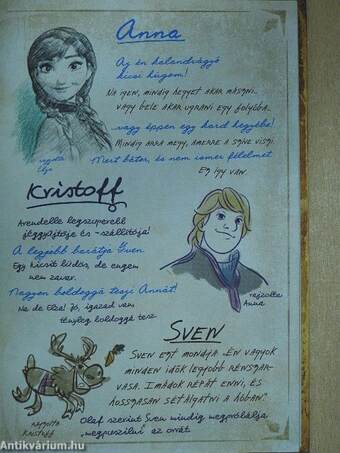 Anna
Az én kalandvágyó
kicsi húgom!
Na igen, mindig hegyet akar mászni,
vagy bele akar ugrani egy folyóba.
...vagy éppen egy hord hegyébe!
Mindig arra megy, amerre a szíve viszi.
Mert bátor, és nem ismer félelmet
Ez így van
rajzolta
Elza
Kristoff
Arendelle legszuperebb
jéggyűjtője és -szállítója!
A legjobb barátja Sven.
Egy kicsit büdös, de engem
nem zavar.
Nagyon boldoggá teszi Annát!
Na de Elza! Jó, igazad van
tényleg boldoggá tesz.
rajzolta
Anna
Sven
Sven ezt mondja: Én vagyok
minden idők legjobb rénszar-
vasa. Imádok répát enni, és
hosszasan sétálgatni a hóban.
Olaf szerint Sven mindig megpróbálja
"megpuszilni" az orrát
rajzolta
Kristoff
Antikvárium.hu